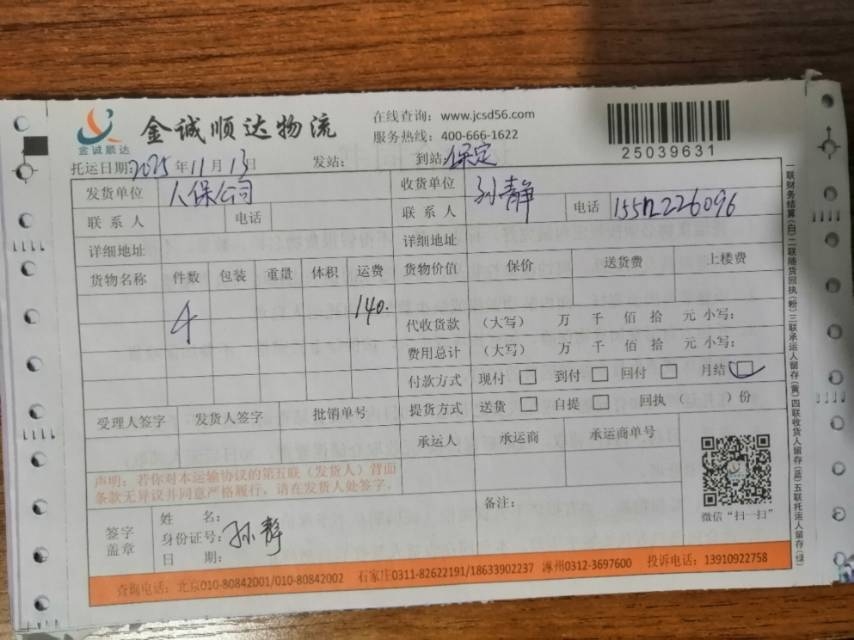 金诚顺达
金诚顺达物流
在线查询：www.jcsd56.com
服务热线：400-666-1622
25039631
托运日期：2025年11月13日 发站： 到站：保定
发货单位 人保公司 收货单位 孙静
联系人 电话 联系人 电话 15512226096
详细地址 详细地址
货物名称 件数 包装 重量 体积 运费 货物价值 保价 送货费 上楼费
140.
代收货款 （大写） 万 千 佰 拾 元 小写：
费用总计 （大写） 万 千 佰 拾 元 小写：
付款方式 现付 到付 回付 月结
提货方式 送货 自提 回执（ ）份
受理人签字 发货人签字 批销单号
承运人 承运商 承运商单号
声明：若你对本运输协议的第五联（发货人）背面
条款无异议并同意严格履行，请在发货人处签字。
签字
盖章
姓 名：
身份证号：孙静
日 期：
备注：
微信“扫一扫”
一联财务结算（白）二联随货回执（粉）三联承运人留存（黄）四联收货人留存（蓝）五联托运人留存（绿）
查询电话：北京010-80842001/010-80842002 石家庄0311-82622191/18633902237 涿州0312-3697600 投诉电话：13910922758